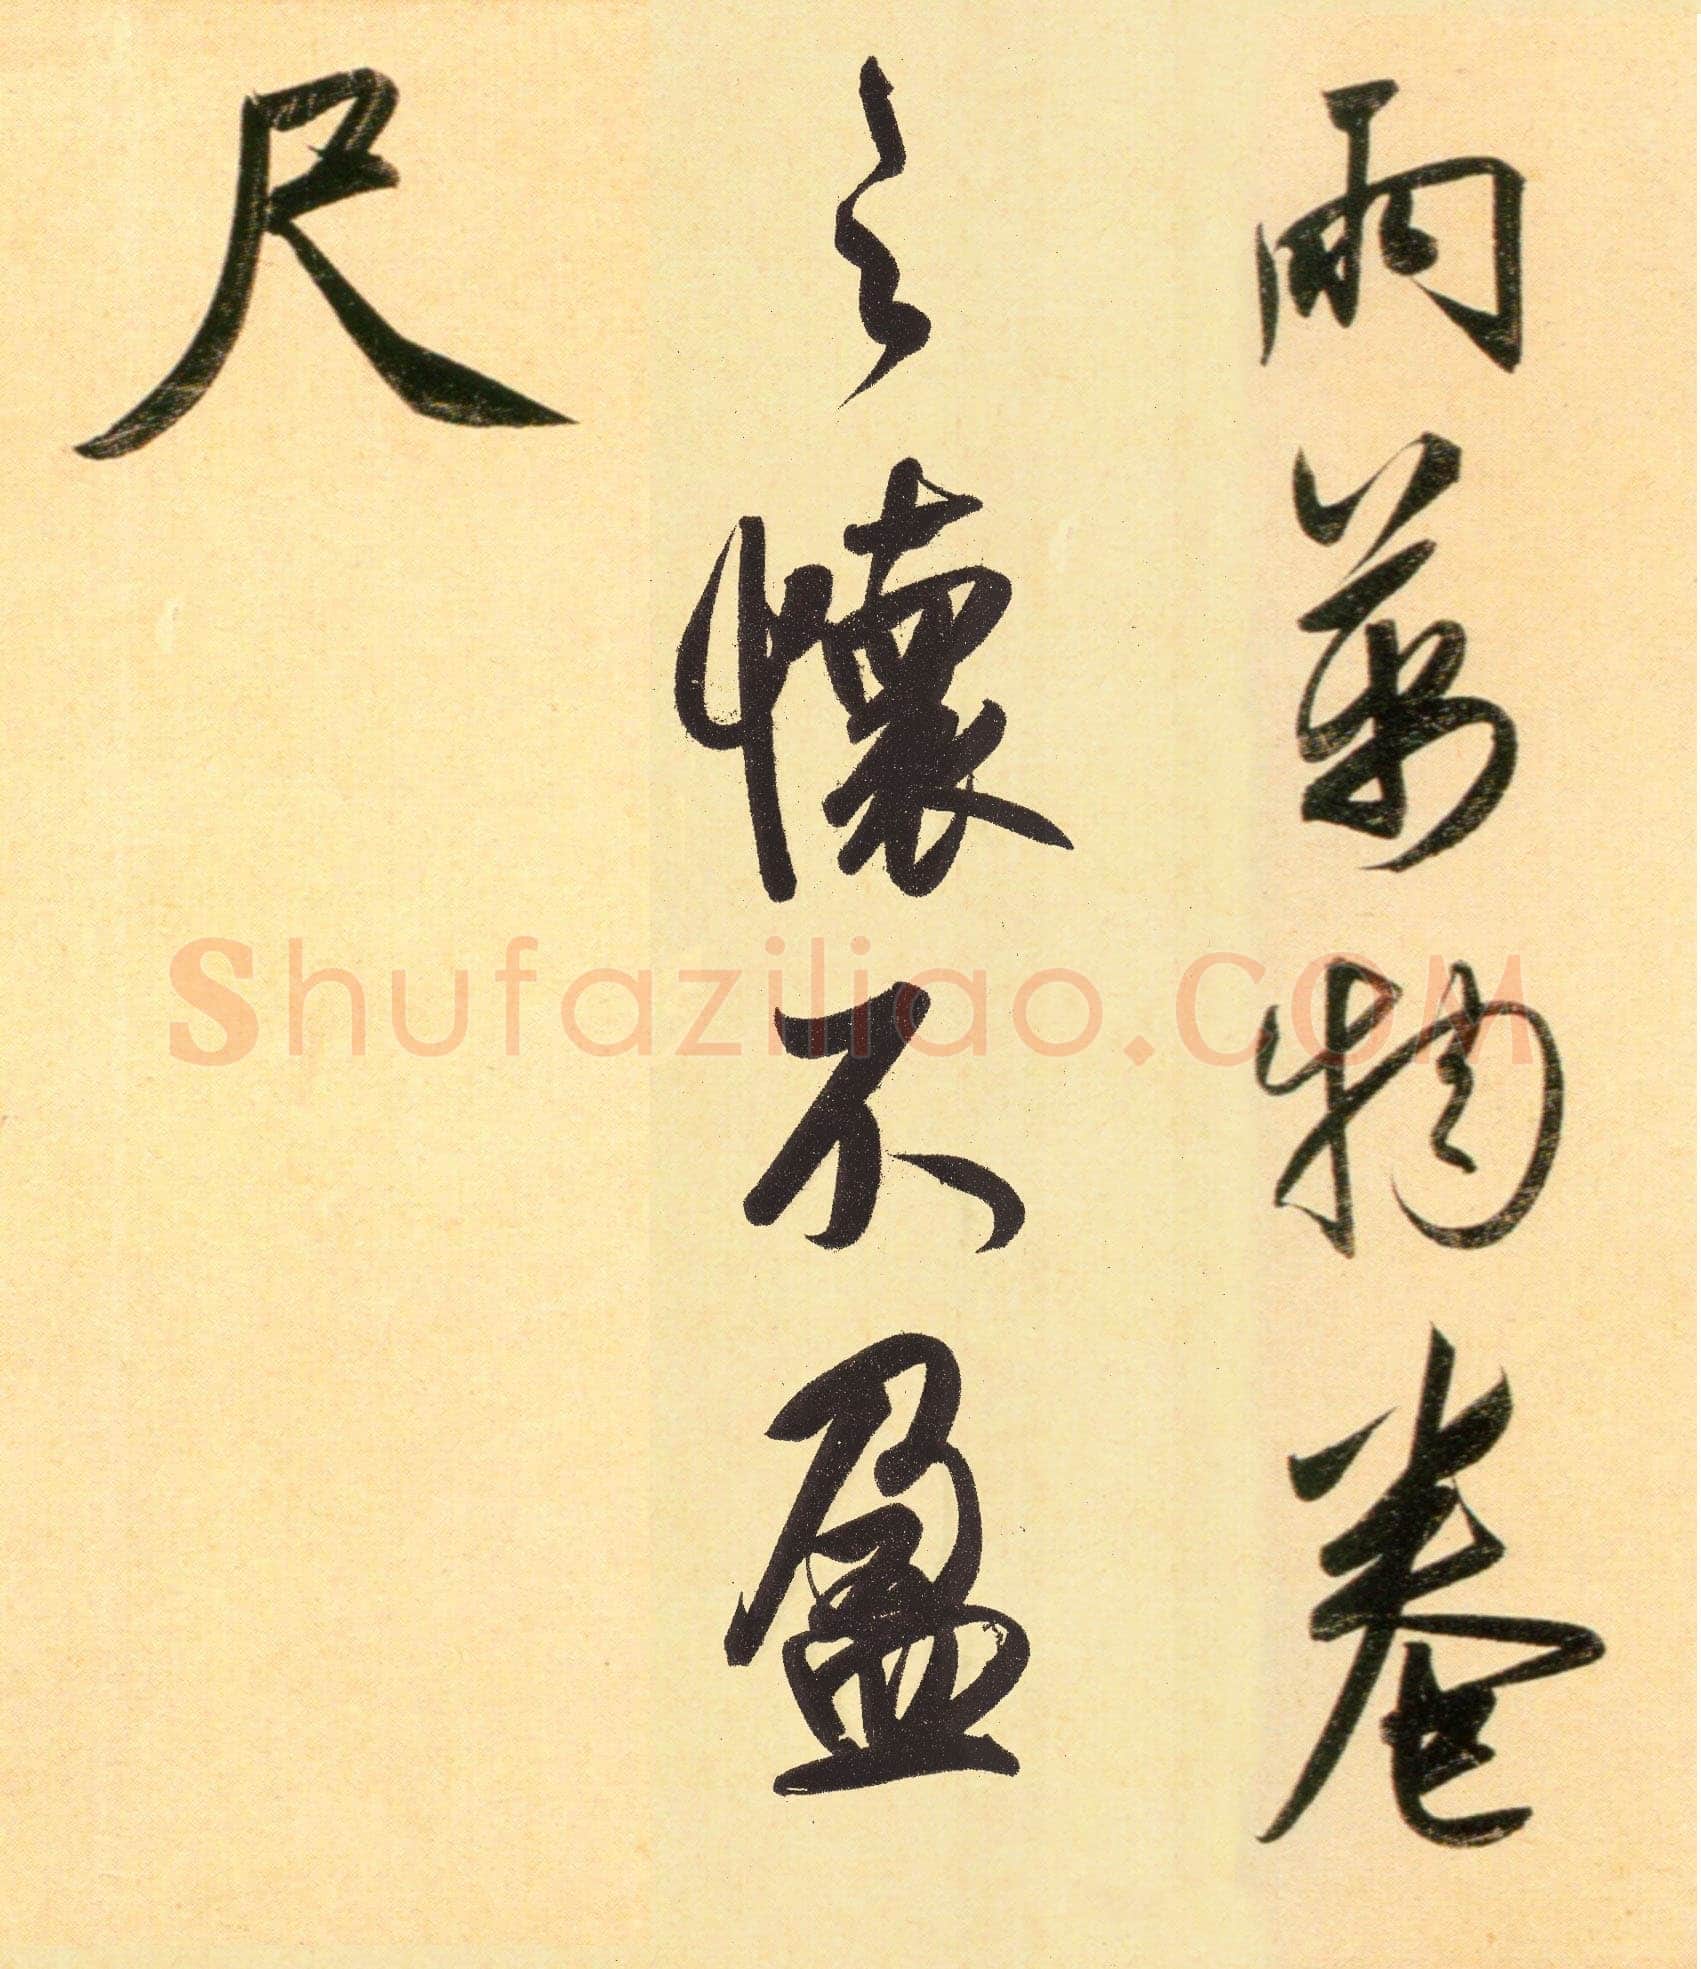 雨萬物卷
之懷不盈
尺
Shufaziliao.COM